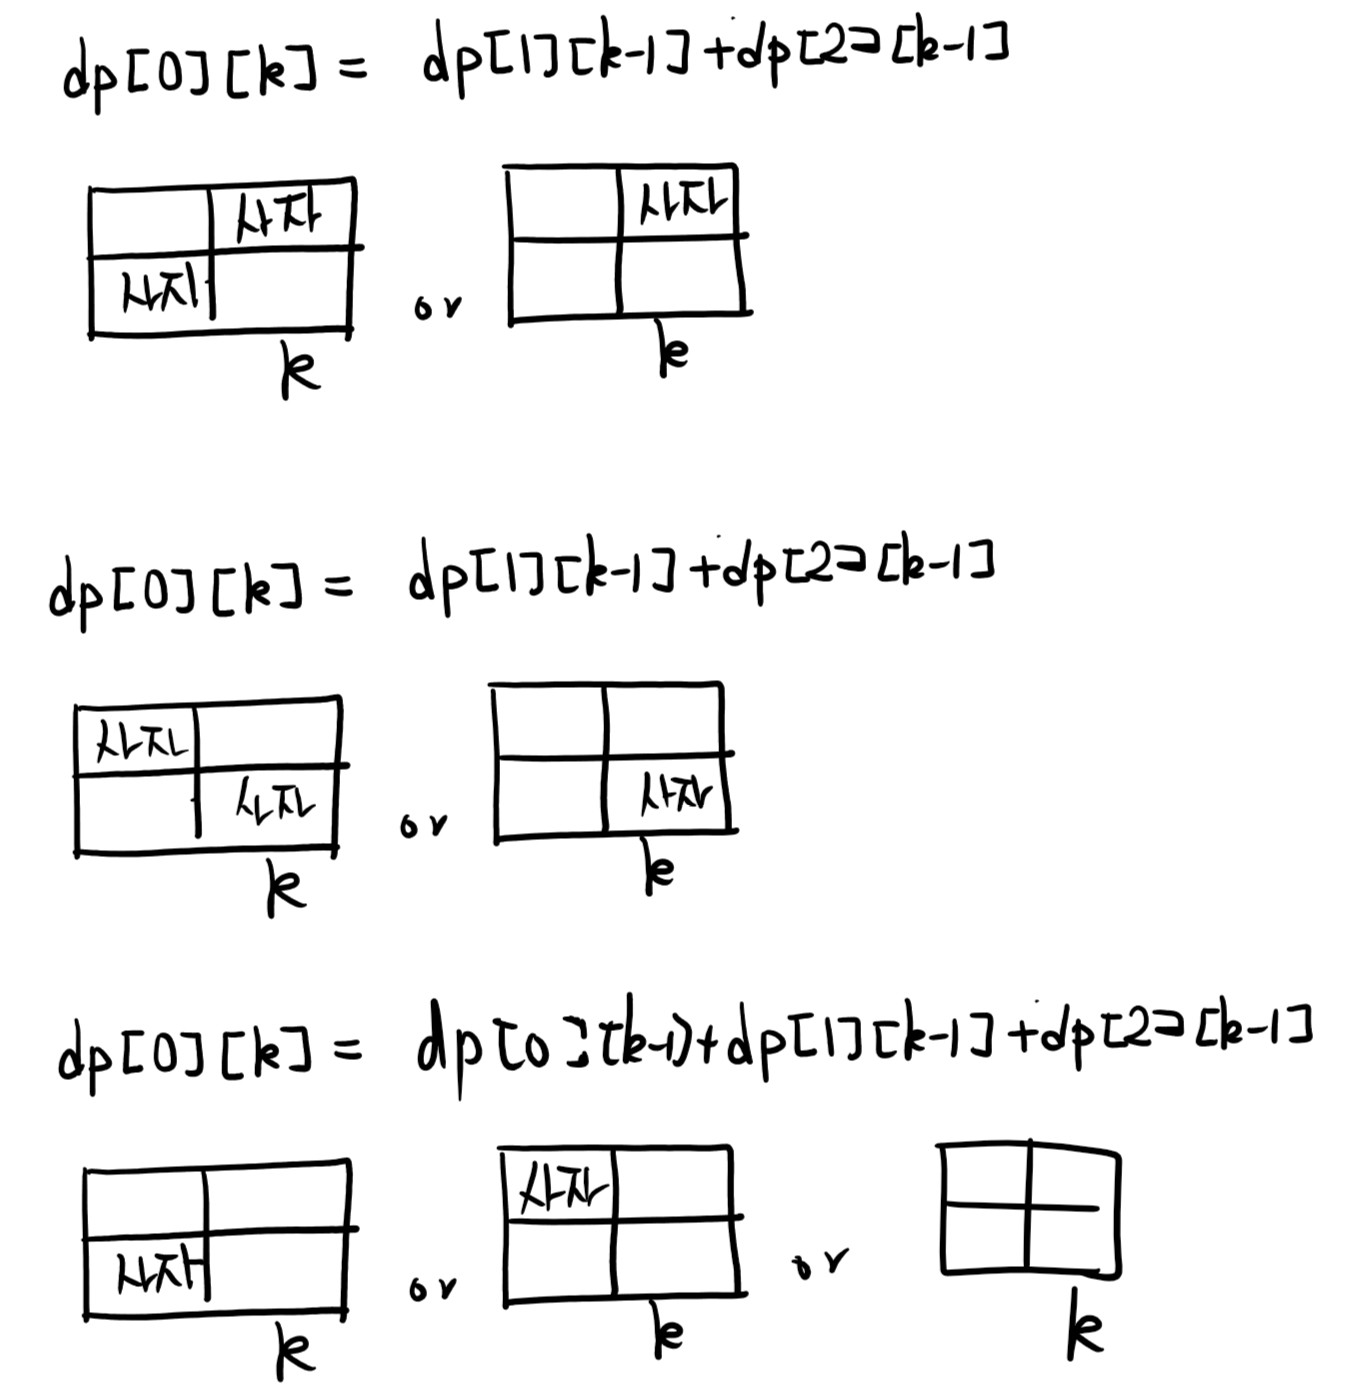 dp[0][k] = dp[1][k-1]+dp[2][k-1]
사자 사자
사지
or
k k
dp[0][k] = dp[1][k-1]+dp[2][k-1]
사자
사자 사자
or
k k
dp[0][k] = dp[0][k-1)+dp[1][k-1]+dp[2][k-1]
사자
사자
or or
k k k